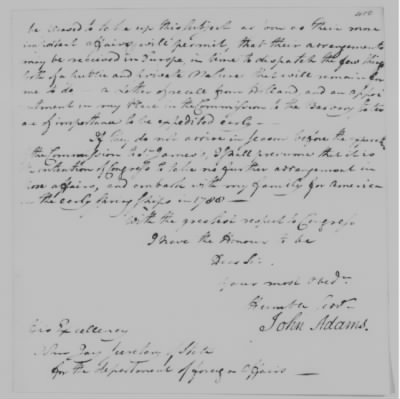 be missed to take up this Subject as soon as their more
important affairs will permit, that their arrangements
may be received in Europe, in time to dispatch the few things
both of a public and private Nature that will remain for
me to do — a letter of recall from Holland and an appoi
ntment in my place in the Commission to the
are of importance to be expedited early —
If they do not arrive in Season before the
the Commission to St James's, I shall presume that it is
the intention of Congress to take no further arrangement in
these affairs, and embark with my family for America
in the early Spring Ships in 1788 —
With the greatest respect to Congress
I have the Honour to be
Dear Sir
your most Obedt
Humble Servt
John Adams.
His Excellency
John Jay Secretary of State
for the department of foreign Affairs —